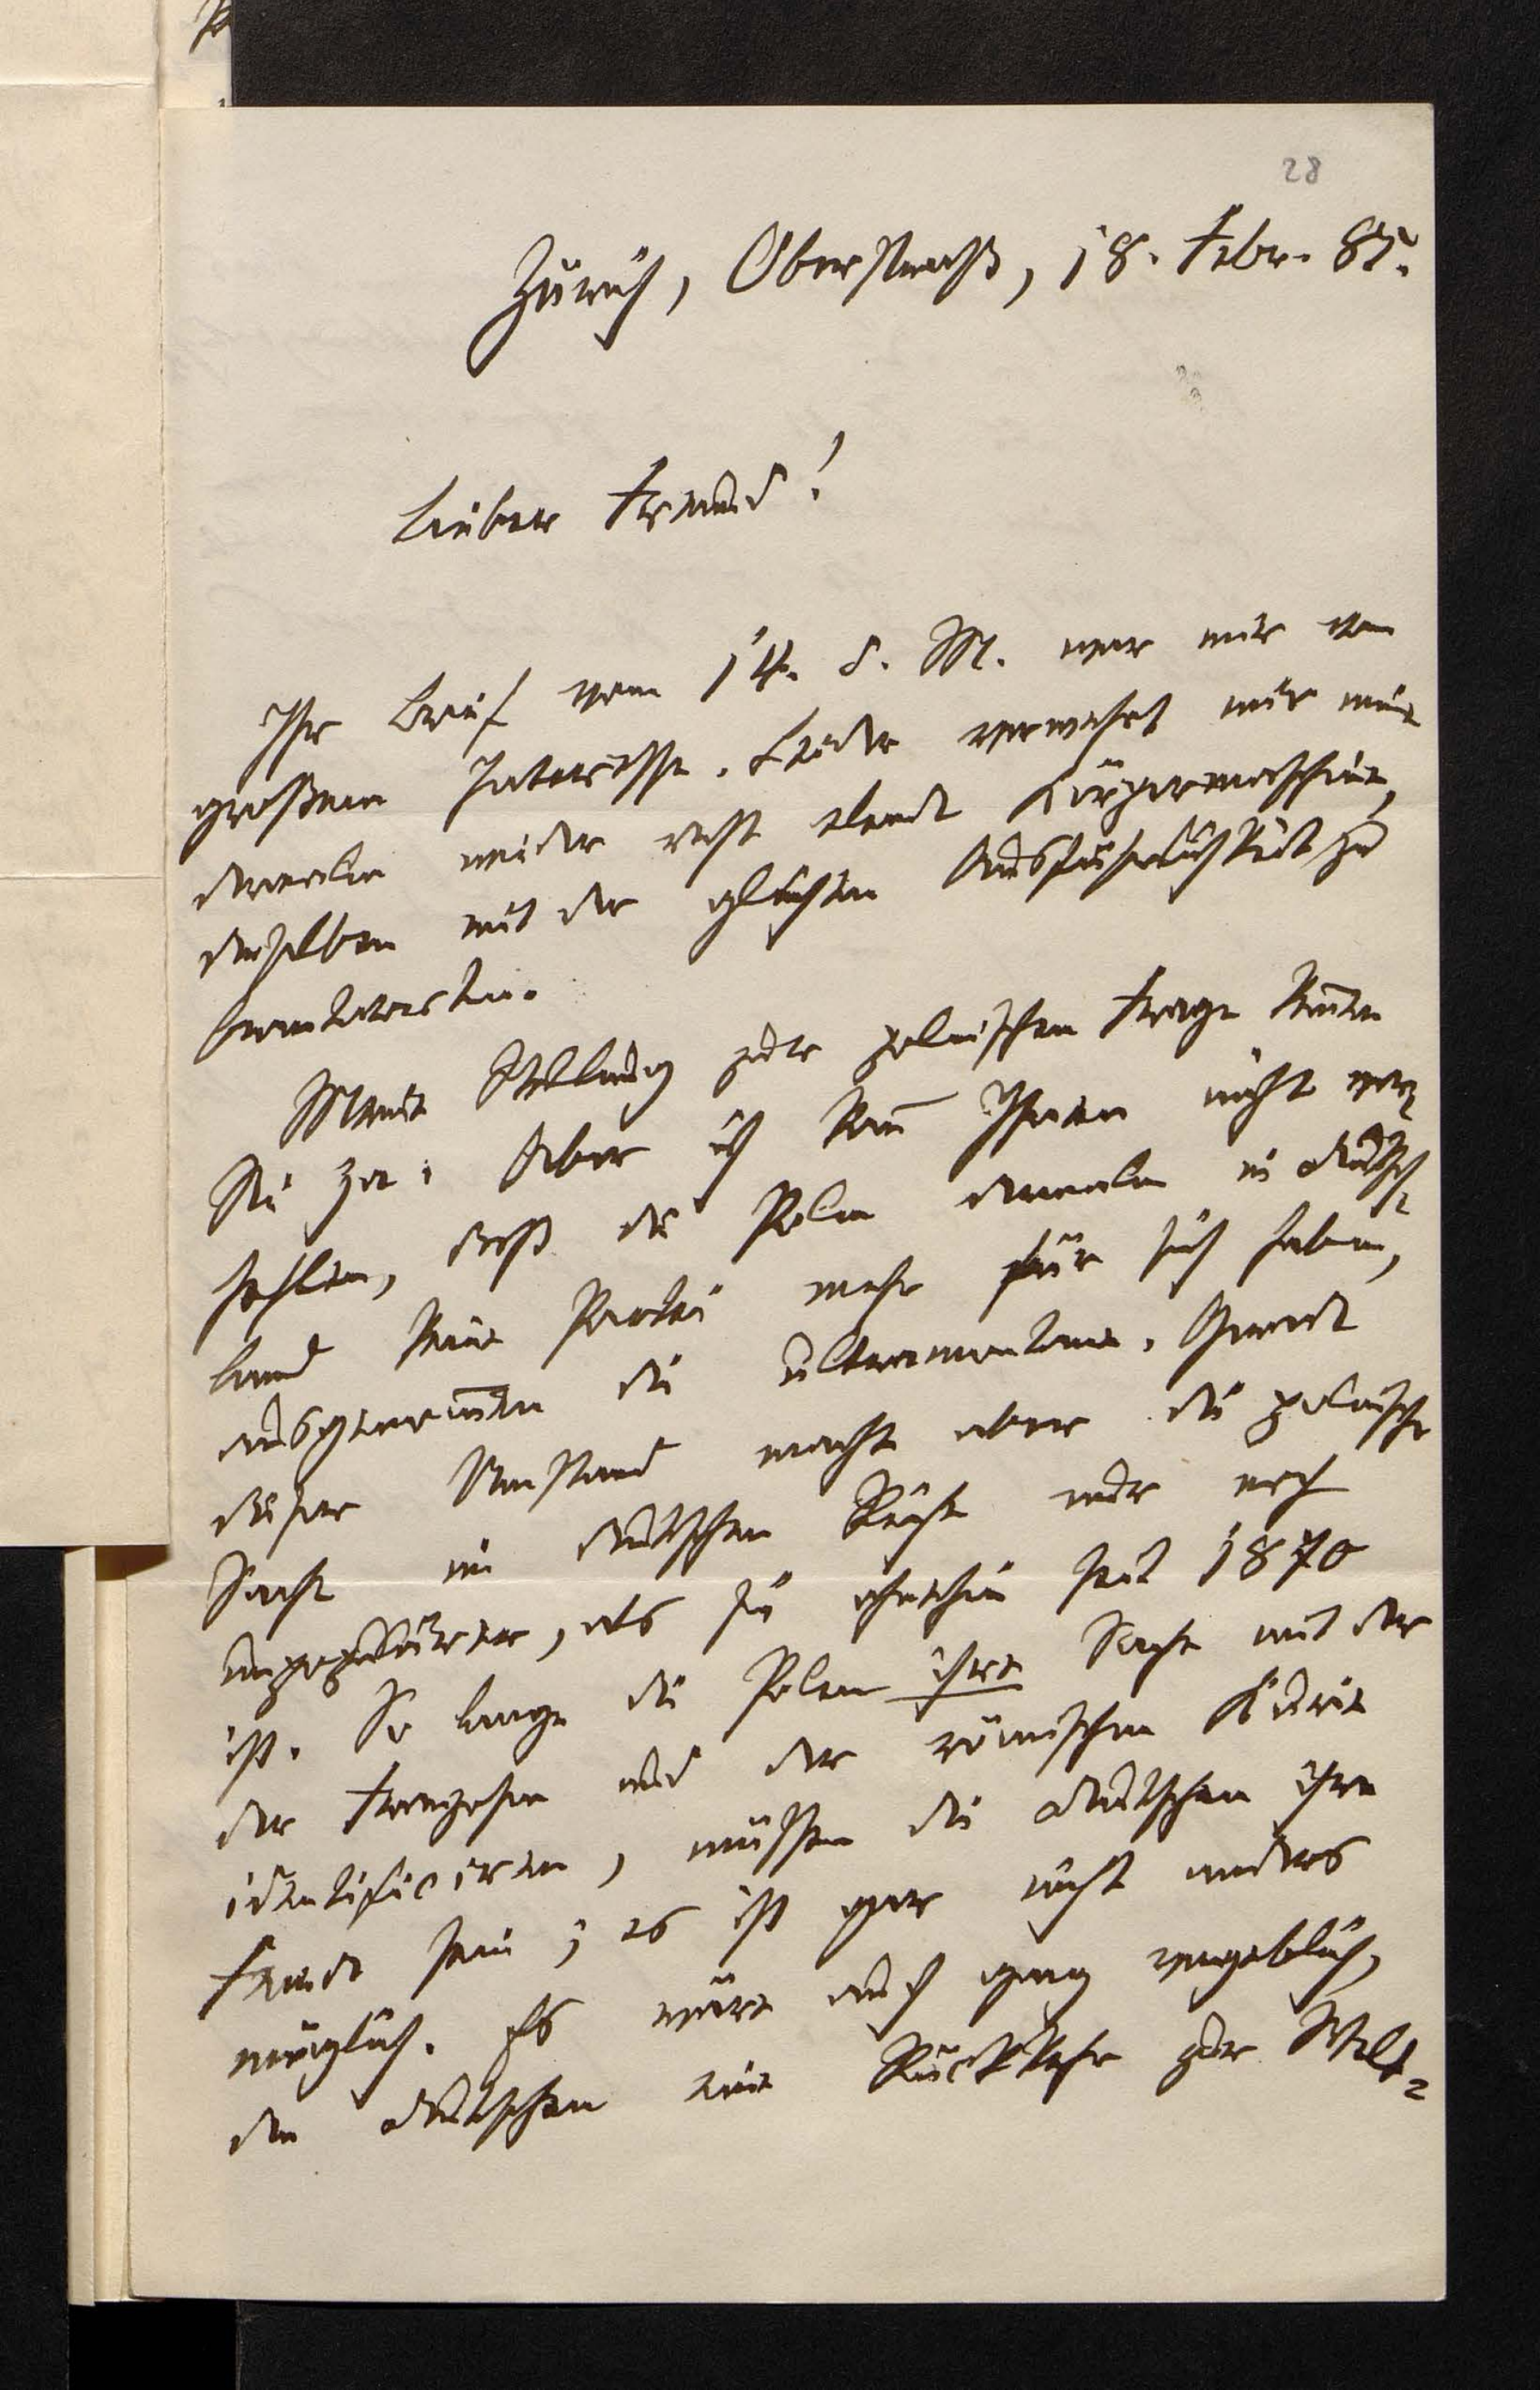 28
Zürich, Oberstraß, 18. Febr. 85.
Lieber Freund!
Ihr Brief vom 14. d. M. war mir von
großem Interesse. Leider verwehrt mir meine
dermalen wieder recht elende Körpermaschine,
denselben mit der gleichen Ausführlichkeit zu
beantworten.
Meine Stellung zur polnischen Frage kennen
Sie ja. Aber ich kann Ihnen nicht ver-
hehlen, daß die Polen dermalen in Deutsch-
land keine Partei mehr für sich haben,
ausgenommen die ultramontane. Gerade
dieser Umstand macht aber die polnische
Sache im deutschen Reiche nur noch
unpopulärer, als sie ohnehin seit 1870
ist. So lange die Polen ihre Sache mit der
der Franzosen und der römischen Kurie
identificiren, müssen die Deutschen ihre
Feinde sein; es ist gar nicht anders
möglich. Es wäre auch ganz vergeblich,
den Deutschen eine Rückkehr zur Welt-